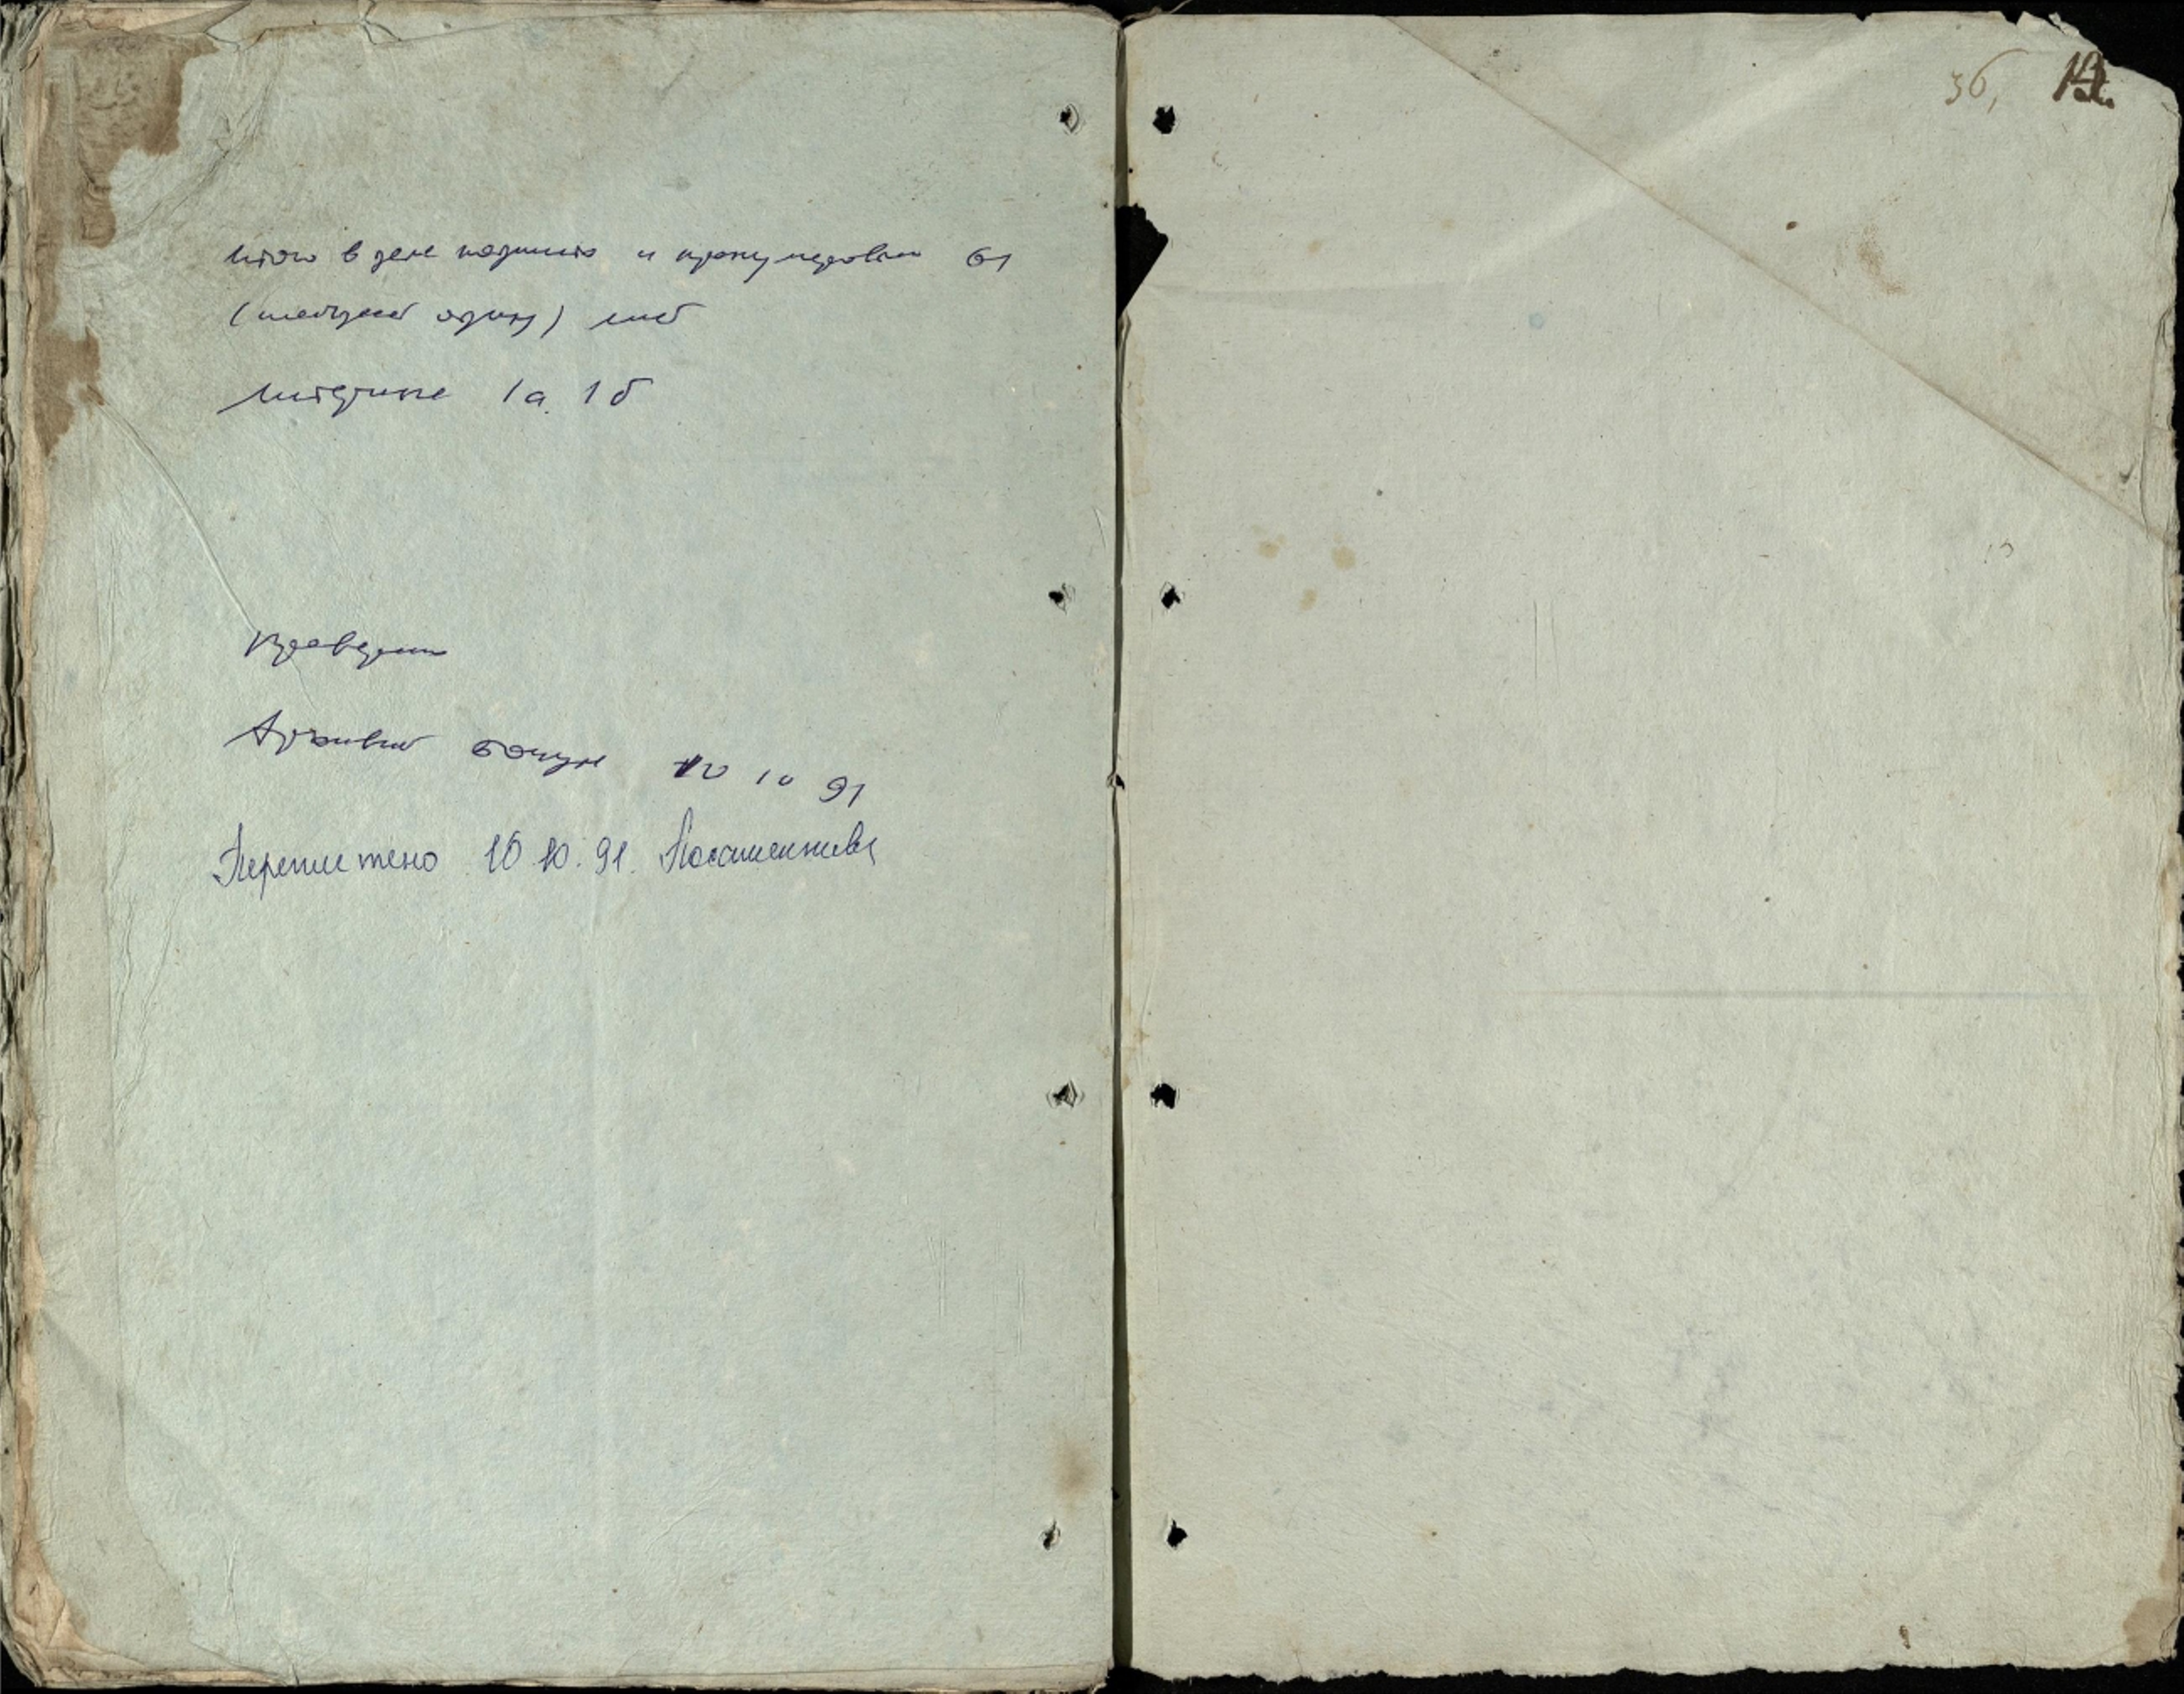 Итого в деле подшито и пронумеровано 61
(шестьдесят один) лист
Литерные 1а, 1б
Проверил
Архивист 10 10 91
Переплетено 10.10.91.
36,